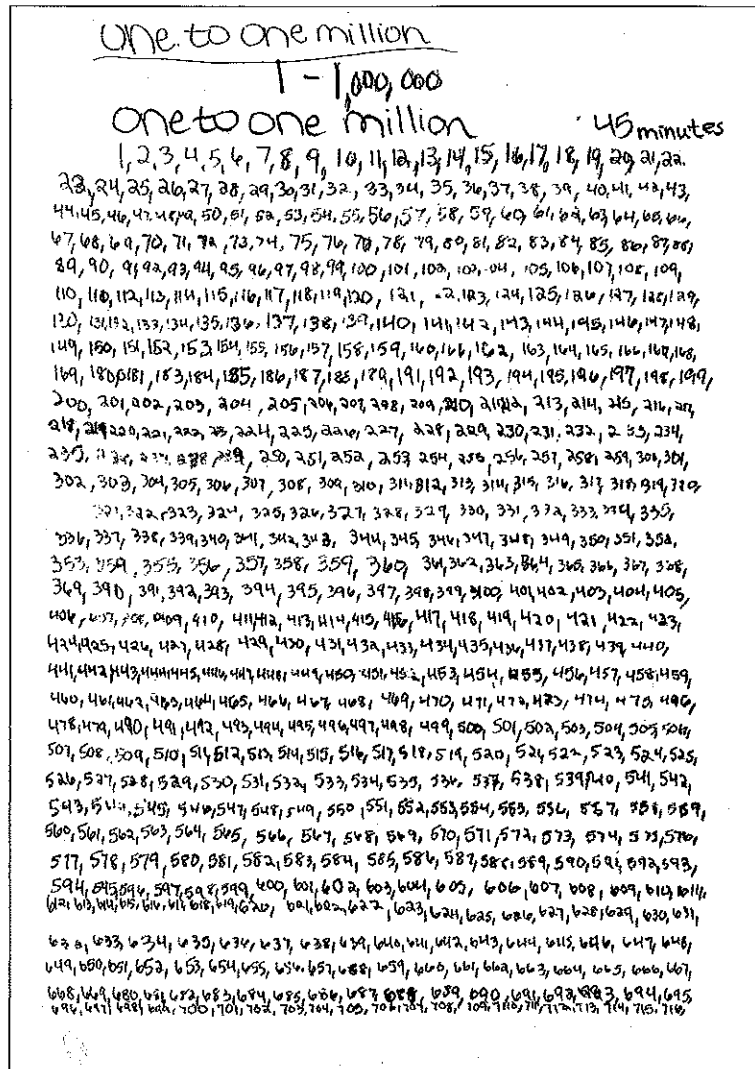 one to one million
1 - 1,000,000
one to one million 45 minutes
1, 2, 3, 4, 5, 6, 7, 8, 9, 10, 11, 12, 13, 14, 15, 16, 17, 18, 19, 20, 21, 22,
23, 24, 25, 26, 27, 28, 29, 30, 31, 32, 33, 34, 35, 36, 37, 38, 39, 40, 41, 42, 43,
44, 45, 46, 47, 48, 49, 50, 51, 52, 53, 54, 55, 56, 57, 58, 59, 60, 61, 62, 63, 64, 65, 66,
67, 68, 69, 70, 71, 72, 73, 74, 75, 76, 78, 79, 80, 81, 82, 83, 84, 85, 86, 87, 88,
89, 90, 91, 92, 93, 94, 95, 96, 97, 98, 99, 100, 101, 102, 105, 106, 107, 108, 109,
110, 112, 113, 114, 115, 116, 117, 118, 119, 120, 121, 124, 125, 126, 127, 128, 129,
130, 131, 132, 133, 134, 135, 136, 137, 138, 139, 140, 141, 142, 143, 144, 145, 146, 147, 148,
149, 150, 151, 152, 153, 154, 155, 156, 157, 158, 159, 160, 162, 163, 164, 165, 166, 168,
169, 180, 181, 183, 184, 185, 186, 187, 188, 189, 191, 192, 193, 194, 195, 196, 197, 198, 199,
200, 201, 202, 203, 204, 205, 206, 207, 208, 209, 210, 213, 214, 215, 216, 217,
218, 219, 220, 221, 222, 224, 225, 226, 227, 228, 229, 230, 231, 232, 233, 234,
235, 238, 239, 250, 251, 252, 253, 254, 255, 256, 257, 258, 259, 300, 301,
302, 303, 304, 305, 306, 307, 308, 309, 310, 311, 312, 313, 314, 315, 316, 317, 318, 319, 320,
321, 322, 323, 324, 325, 326, 327, 328, 329, 330, 331, 332, 333, 334, 335,
336, 337, 338, 339, 340, 341, 342, 343, 344, 345, 346, 347, 348, 349, 350, 351, 352,
353, 354, 355, 356, 357, 358, 359, 360, 361, 362, 363, 364, 365, 366, 367, 368,
369, 390, 391, 392, 393, 394, 395, 396, 397, 398, 399, 400, 401, 402, 403, 404, 405,
406, 407, 408, 409, 410, 411, 412, 413, 414, 415, 416, 417, 418, 419, 420, 421, 422, 423,
424, 425, 426, 427, 428, 429, 430, 431, 432, 433, 434, 435, 436, 437, 438, 439, 440,
441, 442, 443, 444, 445, 446, 447, 448, 449, 450, 451, 452, 453, 454, 455, 456, 457, 458, 459,
460, 461, 462, 463, 464, 465, 466, 467, 468, 469, 470, 471, 472, 473, 474, 475, 476,
478, 479, 490, 491, 492, 493, 494, 495, 496, 497, 498, 499, 500, 501, 502, 503, 504, 505, 506,
507, 508, 509, 510, 511, 512, 513, 514, 515, 516, 517, 518, 519, 520, 521, 522, 523, 524, 525,
526, 527, 528, 529, 530, 531, 532, 533, 534, 535, 536, 537, 538, 539, 540, 541, 542,
543, 544, 545, 546, 547, 548, 549, 550, 551, 552, 553, 554, 555, 556, 557, 558, 559,
560, 561, 562, 563, 564, 565, 566, 567, 568, 569, 570, 571, 572, 573, 574, 575, 576,
577, 578, 579, 580, 581, 582, 583, 584, 585, 586, 587, 588, 589, 590, 591, 592, 593,
594, 595, 596, 597, 598, 599, 600, 601, 602, 603, 604, 605, 606, 607, 608, 609, 610, 611,
612, 613, 614, 615, 616, 617, 618, 619, 620, 621, 622, 622, 623, 624, 625, 626, 627, 628, 629, 630, 631,
632, 633, 634, 635, 636, 637, 638, 639, 640, 641, 642, 643, 644, 645, 646, 647, 648,
649, 650, 651, 652, 653, 654, 655, 656, 657, 658, 659, 660, 661, 662, 663, 664, 665, 666, 667,
668, 669, 680, 681, 682, 683, 684, 685, 686, 687, 688, 689, 690, 691, 692, 693, 694, 695,
696, 697, 698, 699, 700, 701, 702, 703, 704, 705, 706, 707, 708, 709, 710, 711, 712, 713, 714, 715, 716,